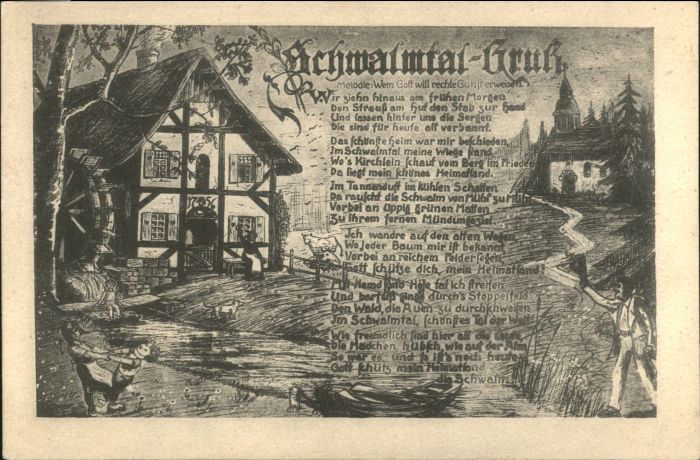 Schwalmtal-Gruß
Melodie: Wem Gott will rechte Gunst erweisen
Wir ziehn hinaus am frühen Morgen
Den Strauß am Hut den Stab zur Hand
Und lassen hinter uns die Sorgen
Die sind für heute all verbannt.
Das schönste Heim war mir beschieden,
Im Schwalmtal meine Wiege stand,
Wo's Kirchlein schaut vom Berg im Frieden
Da liegt mein schönes Heimatland.
Im Tannenduft im kühlen Schatten
Da rauscht die Schwalm von Mühl' zu Mühl'
Vorbei an üppig grünen Matten
Zu ihrem fernen Mündungsziel.
Ich wandre auf den alten Wegen
Wo jeder Baum mir ist bekannt
Vorbei an reichem Feldersegen
Gott schütze dich, mein Heimatland!
Mit Hemd und Hose tat ich streifen
Und barfuß gings durch's Stoppelfeld
Den Wald, die Auen zu durchschweifen
Im Schwalmtal, schönstes Tal der Welt.
Wie freundlich sind hier all die
Die Mädchen hübsch, wie auf der Alm
So war es und so ist's noch heute
Gott schütz mein Heimatland
die Schwalm